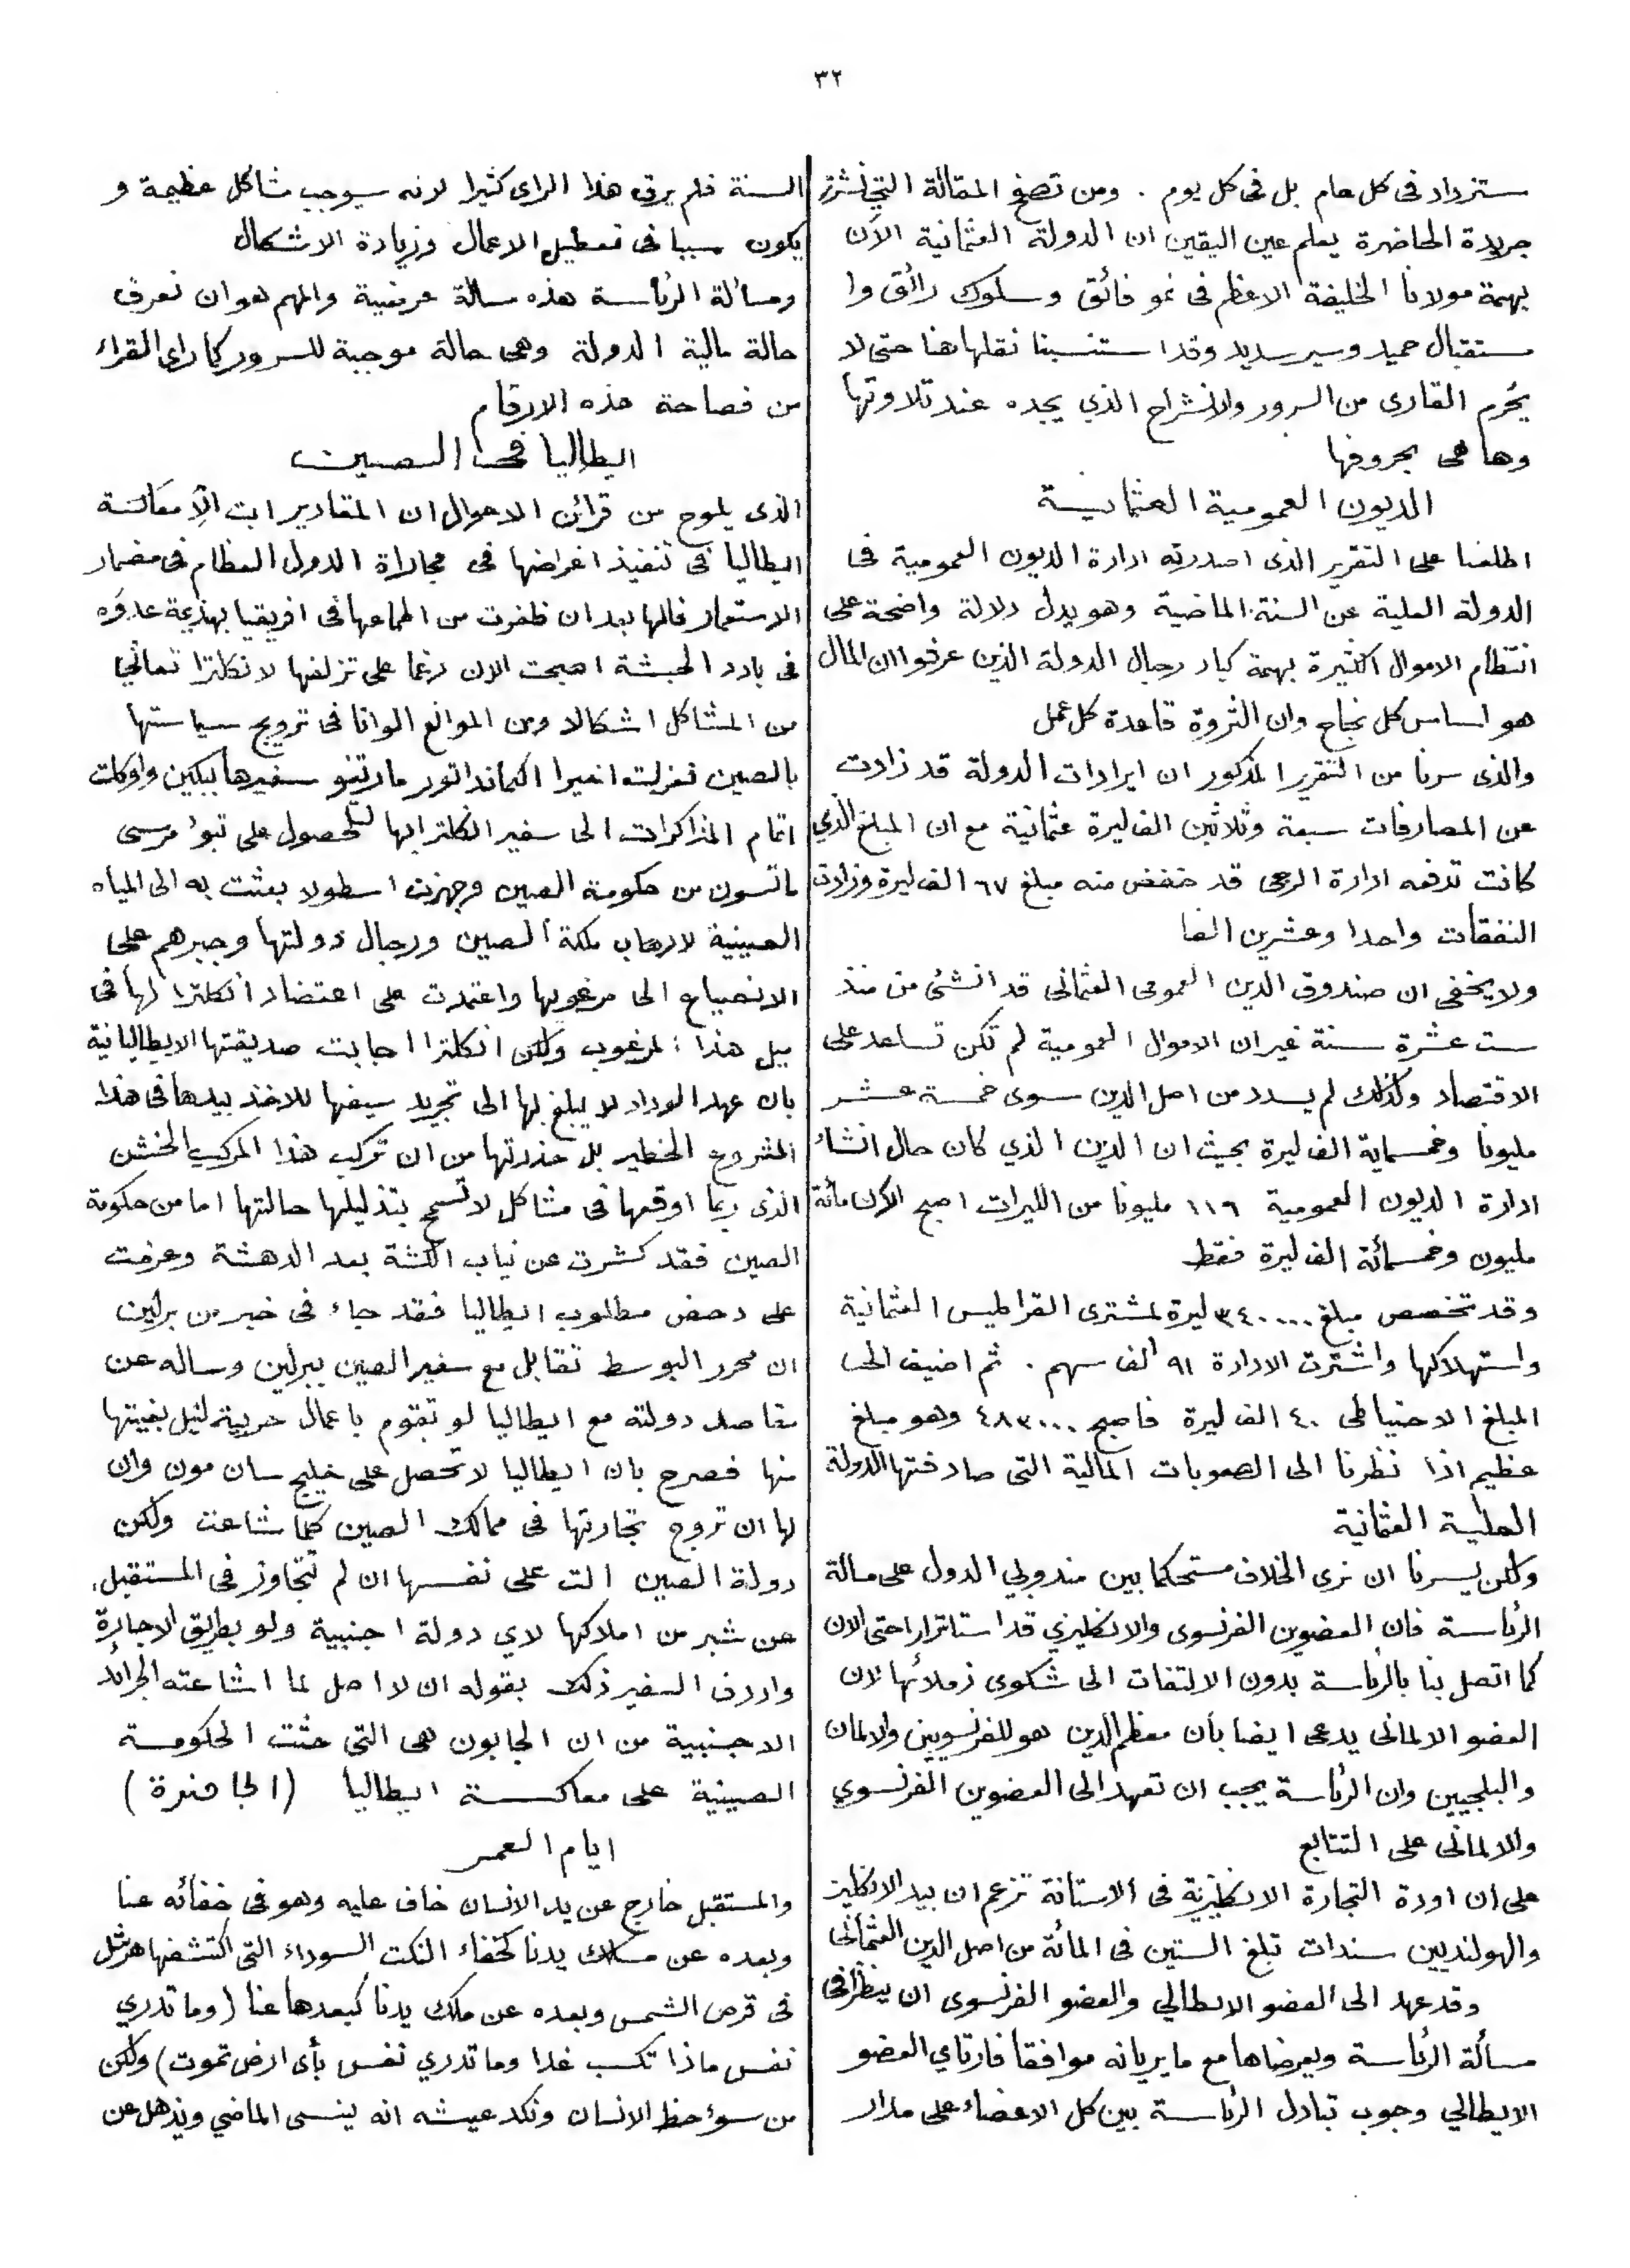 ٣٢
ستزداد فى كل عام بل فى كل يوم . ومن تصفح المقالة التي نشرتها
جريدة الحاضرة يعلم عين اليقين ان الدولة العثمانية الآن
بهمة مولانا الخليفة الاعظم فى نمو فائق وسلوك رائق وا
ستقبال حميد وسير سديد وقد استنسبنا نقلها هنا حتى لا
يحرم القارى من السرور والانشراح الذي يجده عند تلاوتها
وها هى بحروفها
الديون العمومية العثمانية
اطلعنا على التقرير الذى اصدرته ادارة الديون العمومية فى
الدولة العلية عن السنة الماضية وهو يدل دلالة واضحة على
انتظام الاموال الكثيرة بهمة كبار رجال الدولة الذين عرفوا ان المال
هو اساس كل نجاح وان الثروة قاعدة كل عمل
والذى سرنا من التقرير المذكور ان ايرادات الدولة قد زادت
عن المصارفات سبعة وثلاثين الف ليرة عثمانية مع ان المبلغ الذي
كانت تدفعه ادارة الرجى قد خفض منه مبلغ ٦٧ الف ليرة وزادت
النفقات واحدا وعشرين الفا
ولا يخفى ان صندوق الدين العمومى العثمانى قد انشئ من منذ
ست عشرة سنة غير ان الاموال العمومية لم تكن تساعد على
الاقتصاد ولذلك لم يسدد من اصل الدين سوى خمسة عشر
مليونا وخمسماية الف ليرة بحيث ان الدين الذي كان حال انشاء
ادارة الديون العمومية ١١٦ مليونا من الليرات اصبح الآن مائة
مليون وخمسمائة الف ليرة فقط
وقد تخصص مبلغ ٣٤٠٠٠٠ ليرة لمشترى القراطيس العثمانية
واستهلاكها واشترت الادارة ٩١ الف سهم . ثم اضيف الى
المبلغ الاحتياطى ٤٠ الف ليرة فاصبح ٤٨٣٠٠٠ وهو مبلغ
عظيم اذا نظرنا الى الصعوبات المالية التى صادفتها الدولة
العلية العثمانية
ولكن يسرنا ان نرى الخلاف مستحكما بين مندوبي الدول على مسالة
الرئاسة فان العضوين الفرنسوى والانكليزي قد استاثرا حتى الان
كما اتصل بنا بالرئاسة بدون الالتفات الى شكوى زملائها لان
العضو الالمانى يدعى ايضا بأن معظم الدين هو للفرنسويين والالمان
والبلجيين وان الرئاسة يجب ان تعهد الى العضوين الفرنسوي
والالمانى على التتابع
على ان اودة التجارة الانكليزية فى الاستانة تزعم ان بيد الانكليز
والهولنديين سندات تبلغ الستين فى المائة من اصل الدين العثمانى
وقد عهد الى العضو الايطالي والعضو الفرنسوى ان ينظرا فى
مسألة الرئاسة ويعرضاها مع ما يريانه موافقا فارتاي العضو
الايطالي وجوب تبادل الرئاسة بين كل الاعضاء على مدار
السنة فلم يرق هذا الراى كثيرا لانه سيوجب مشاكل عظيمة و
يكون سببا فى تعطيل الاعمال وزيادة الاشكال
ومسألة الرئاسة هذه مسالة عرضية والمهم هو ان نعرف
حالة مالية الدولة وهى حالة موجبة للسرور كما راى القراء
من فصاحة هذه الارقام
ايطاليا فى الصين
الذى يلوح من قرائن الاحوال ان المقادير ابت الا معاكسة
ايطاليا فى تنفيذ اغراضها فى مجاراة الدول العظام فى مضمار
الاستعمار فانها بعد ان ظفرت من اطماعها فى افريقيا بهزيمة عدوه
فى بلاد الحبشة اصبحت الان رغما على تزلفها لانكلترا تعاني
من المشاكل اشكالا ومن الموانع الوانا فى ترويج سياستها
بالصين فعزلت اخيرا الكماندانور مارتنو سفيرها ببكين واوكلت
اتمام المذاكرات الى سفير انكلترا بها للحصول على تبوء مرسى
سان مون من حكومة الصين وجهزت اسطولا بعثت به الى المياه
الصينية لارهاب ملكة الصين ورجال دولتها وجبرهم على
الانصياع الى مرغوبها واعتمدت على اعتضاد انكلترا لها فى
نيل هذا المرغوب ولكن انكلترا اجابت صديقتها الايطاليانية
بان عهد الوداد لا يبلغ بها الى تجريد سيفها للاخذ بيدها فى هذا
المشروع الخطير بل حذرتها من ان تركب هذا المركب الخشن
الذى ربما اوقعها فى مشاكل لا تسمح بتذليلها حالتها اما من حكومة
الصين فقد كشرت عن نياب الكشة بعد الدهشة وعزمت
على دحض مطلوب ايطاليا فقد جاء فى خبر من برلين
ان محرر البوسط تقابل مع سفير الصين ببرلين وساله عن
مقاصد دولته مع ايطاليا لو تقوم باعمال حربية لنيل بغيتها
منها فصرح بان ايطاليا لا تحصل على خليج سان مون وان
لها ان تروج تجارتها فى ممالك الصين كيفما شاءت ولكن
دولة الصين الت على نفسها ان لم تتجاوز فى المستقبل
عن شبر من املاكها لاي دولة اجنبية ولو بطريق الاجارة
واردف السفير ذلك بقوله ان لا اصل لما اشاعته الجرائد
الاجنبية من ان الجابون هى التى حثت الحكومة
الصينية على معاكسة ايطاليا (الحاضرة)
ايام العمر
والمستقبل خارج عن يد الانسان خاف عليه وهو فى خفائه عنا
وبعده عن مسلك يدنا كخفاء النكت السوداء التى اكتشفها هرشل
فى قرص الشمس وبعده عن ملك يدنا كبعدها عنا (وما تدري
نفس ماذا تكسب غدا وما تدري نفس بأى ارض تموت) ولكن
من سوء حظ الانسان ونكد عيشه انه ينسى الماضي ويذهل عن